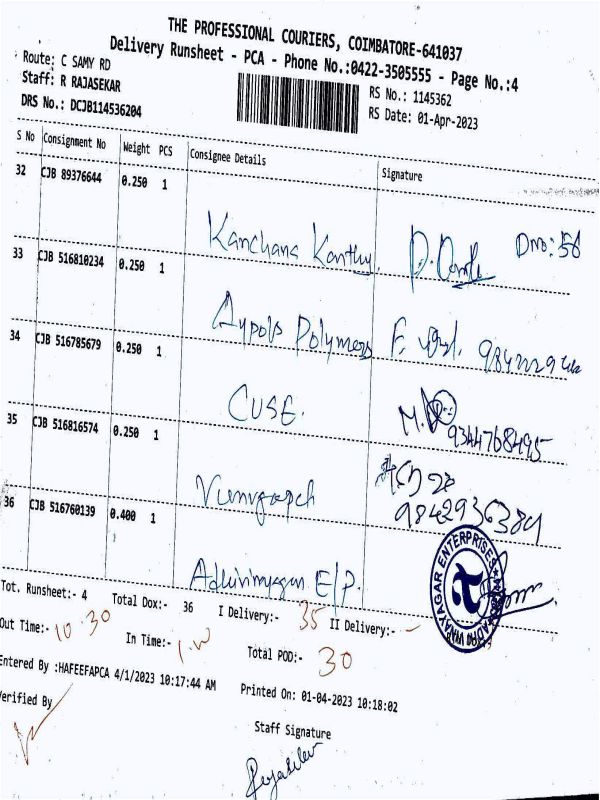 THE PROFESSIONAL COURIERS, COIMBATORE-641037
Delivery Runsheet - PCA - Phone No.:0422-3505555 - Page No.:4
Route: C SAMY RD
Staff: R RAJASEKAR
RS No.: 1145362
DRS No.: DCJB114536204
RS Date: 01-Apr-2023
S No Consignment No Weight PCS Consignee Details Signature
32 CJB 89376644 0.250 1
Kanchana Kanthy Dno: 58
33 CJB 516810234 0.250 1
Polymers F.
34 CJB 516785679 0.250 1
CUSE. M.
9344768495
35 CJB 516816574 0.250 1
9842936384
36 CJB 516760139 0.400 1
E/P.
VINAYAGAR ENTERPRISES
Tot. Runsheet:- 4 Total Dox:- 36 I Delivery:- 35 II Delivery:- -
Out Time:- 10.30 In Time:- Total POD:- 30
Entered By :HAFEEFAPCA 4/1/2023 10:17:44 AM Printed On: 01-04-2023 10:18:02
Verified By
Staff Signature